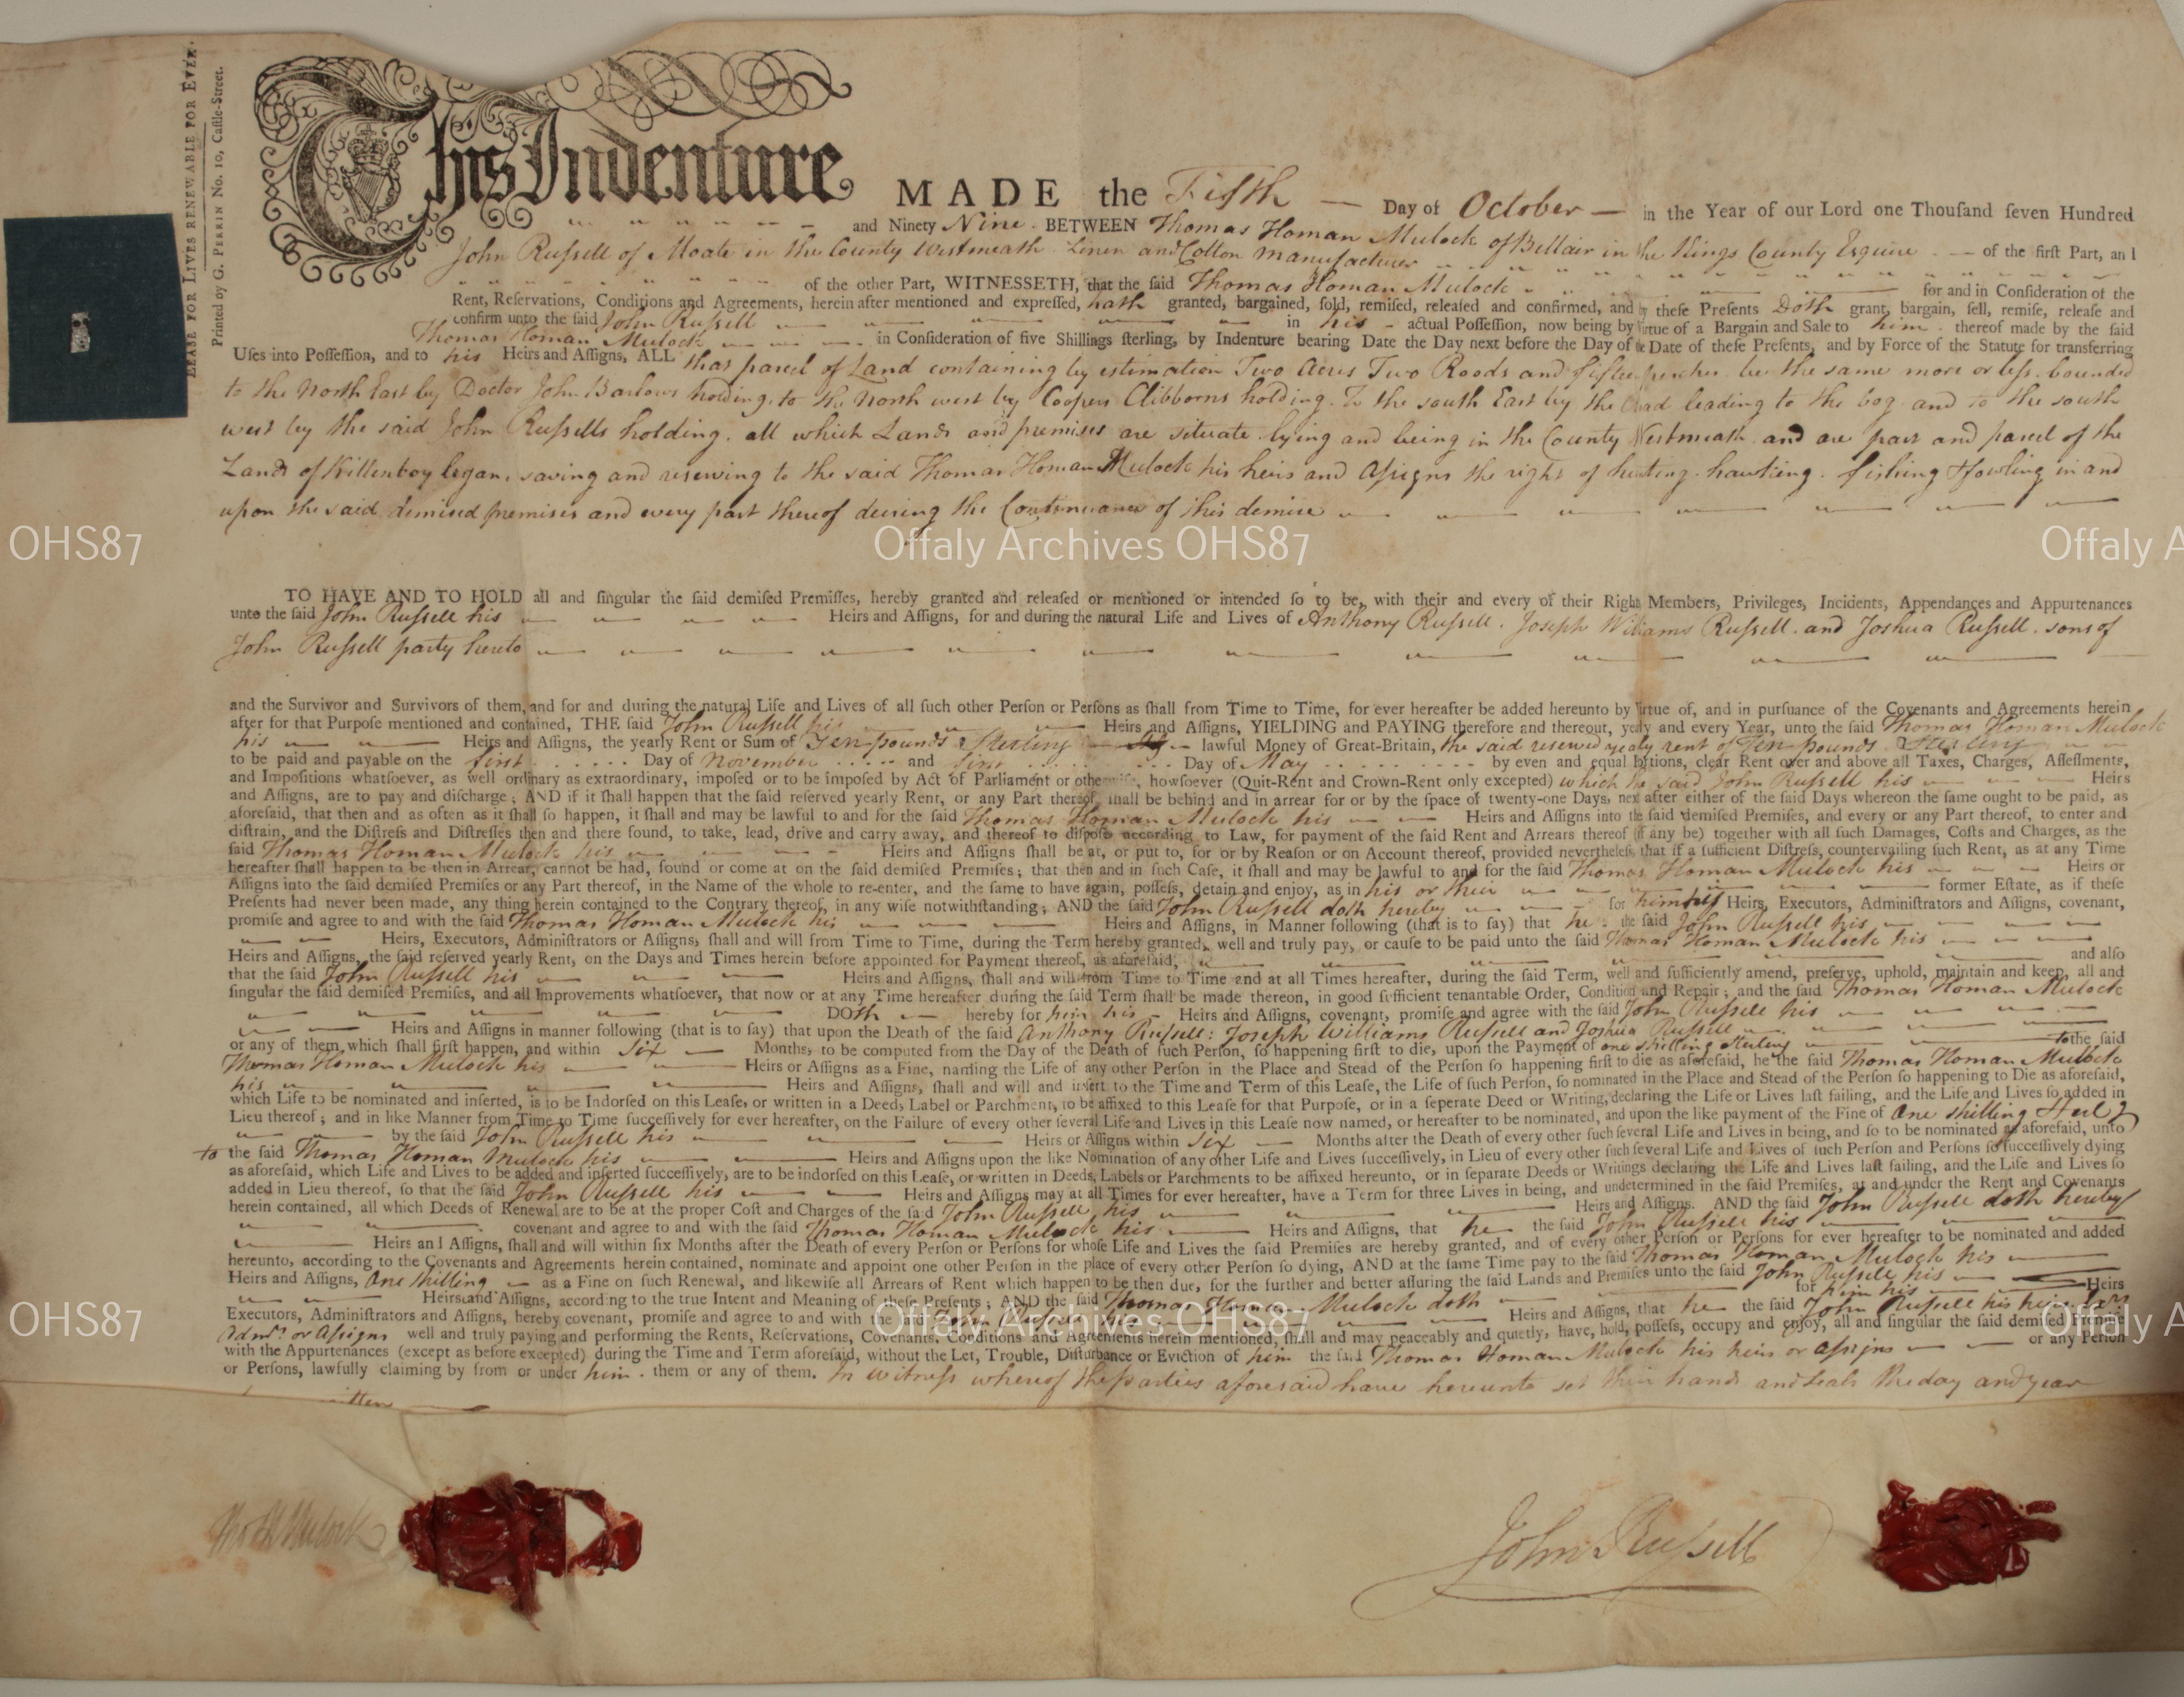 LEASE FOR LIVES RENEWABLE FOR EVER.
Printed by G. PERRIN No. 10, Caſtle-Street.
This Indenture MADE the Fifth Day of October in the Year of our Lord one Thouſand ſeven Hundred
and Ninety Nine. BETWEEN Thomas Homan Mulock of Bellair in the Kings County Esquire of the first Part, and
John Ruſsell of Moate in the County Westmeath Linen and Cotton Manufacturer
of the other Part, WITNESSETH, that the said Thomas Homan Mulock for and in Conſideration of the
Rent, Reſervations, Conditions and Agreements, herein after mentioned and expreſſed, hath granted, bargained, ſold, remiſed, releaſed and confirmed, and by theſe Preſents Doth grant, bargain, ſell, remiſe, releaſe and
confirm unto the ſaid John Ruſsell in his actual Poſſeſſion, now being by Virtue of a Bargain and Sale to him thereof made by the ſaid
Thomas Homan Mulock in Conſideration of five Shillings ſterling, by Indenture bearing Date the Day next before the Day of the Date of theſe Preſents, and by Force of the Statute for transferring
Uſes into Poſſeſſion, and to his Heirs and Aſſigns, ALL that parcel of Land containing by estimation Two Acres Two Roods and fifteen perches be the same more or leſs bounded
to the North East by Doctor John Barlows holding. to the North west by Coopers Clibborns holding. To the south East by the Road leading to the bog and to the south
west by the said John Ruſsells holding. all which Lands and premises are situate lying and being in the County Westmeath and are part and parcel of the
Lands of Killenboylegan, saving and reserving to the said Thomas Homan Mulock his heirs and Aſsigns the right of hunting. hawking. fishing & fowling in and
upon the said demised premises and every part thereof during the Continuance of this demise
TO HAVE AND TO HOLD all and ſingular the ſaid demiſed Premiſſes, hereby granted and releaſed or mentioned or intended ſo to be, with their and every of their Right Members, Privileges, Incidents, Appendances and Appurtenances
unto the ſaid John Ruſsell his Heirs and Aſſigns, for and during the natural Life and Lives of Anthony Ruſsell. Joseph Williams Ruſsell. and Joshua Ruſsell. sons of
John Ruſsell party hereto
and the Survivor and Survivors of them, and for and during the natural Life and Lives of all ſuch other Perſon or Perſons as ſhall from Time to Time, for ever hereafter be added hereunto by Virtue of, and in purſuance of the Covenants and Agreements herein
after for that Purpoſe mentioned and contained, THE ſaid John Ruſsell his Heirs and Aſſigns, YIELDING and PAYING therefore and thereout, yearly and every Year, unto the ſaid Thomas Homan Mulock
his Heirs and Aſſigns, the yearly Rent or Sum of Ten pounds Sterling lawful Money of Great-Britain, the said reserved yearly rent of Ten pounds Sterling
to be paid and payable on the first Day of November and first Day of May by even and equal Portions, clear Rent over and above all Taxes, Charges, Aſſeſſments,
and Impoſitions whatſoever, as well ordinary as extraordinary, impoſed or to be impoſed by Act of Parliament or otherwiſe, howſoever (Quit-Rent and Crown-Rent only excepted) which the said John Ruſsell his Heirs
and Aſſigns, are to pay and diſcharge; AND if it ſhall happen that the ſaid reſerved yearly Rent, or any Part thereof, ſhall be behind and in arrear for or by the ſpace of twenty-one Days, next after either of the ſaid Days whereon the ſame ought to be paid, as
aforeſaid, that then and as often as it ſhall ſo happen, it ſhall and may be lawful to and for the ſaid Thomas Homan Mulock his Heirs and Aſſigns into the ſaid demiſed Premiſes, and every or any Part thereof, to enter and
diſtrain, and the Diſtreſs and Diſtreſſes then and there found, to take, lead, drive and carry away, and thereof to diſpoſe according to Law, for payment of the ſaid Rent and Arrears thereof (if any be) together with all ſuch Damages, Coſts and Charges, as the
ſaid Thomas Homan Mulock his Heirs and Aſſigns ſhall be at, or put to, for or by Reaſon or on Account thereof, provided nevertheleſs that if a ſufficient Diſtreſs, countervailing ſuch Rent, as at any Time
hereafter ſhall happen to be then in Arrear, cannot be had, found or come at on the ſaid demiſed Premiſes; that then and in ſuch Caſe, it ſhall and may be lawful to and for the ſaid Thomas Homan Mulock his Heirs or
Aſſigns into the ſaid demiſed Premiſes or any Part thereof, in the Name of the whole to re-enter, and the ſame to have again, poſſeſs, detain and enjoy, as in his or their former Eſtate, as if theſe
Preſents had never been made, any thing herein contained to the Contrary thereof, in any wiſe notwithſtanding; AND the ſaid John Ruſsell doth hereby for himself Heirs, Executors, Adminiſtrators and Aſſigns, covenant,
promiſe and agree to and with the ſaid Thomas Homan Mulock his Heirs and Aſſigns, in Manner following (that is to ſay) that he the ſaid John Ruſsell his
Heirs, Executors, Adminiſtrators or Aſſigns, ſhall and will from Time to Time, during the Term hereby granted, well and truly pay, or cauſe to be paid unto the ſaid Thomas Homan Mulock his
Heirs and Aſſigns, the ſaid reſerved yearly Rent, on the Days and Times herein before appointed for Payment thereof, as aforeſaid, and alſo
that the ſaid John Ruſsell his Heirs and Aſſigns, ſhall and will from Time to Time and at all Times hereafter, during the ſaid Term, well and ſufficiently amend, preſerve, uphold, maintain and keep, all and
ſingular the ſaid demiſed Premiſes, and all Improvements whatſoever, that now or at any Time hereafter during the ſaid Term ſhall be made thereon, in good ſufficient tenantable Order, Condition and Repair; and the ſaid Thomas Homan Mulock
DOth hereby for him his Heirs and Aſſigns, covenant, promiſe and agree with the ſaid John Ruſsell his
Heirs and Aſſigns in manner following (that is to ſay) that upon the Death of the ſaid Anthony Ruſsell: Joseph Williams Ruſsell and Joshua Ruſsell
or any of them, which ſhall firſt happen, and within Six Months, to be computed from the Day of the Death of ſuch Perſon, ſo happening firſt to die, upon the Payment of one shilling sterling to the ſaid
Thomas Homan Mulock his Heirs or Aſſigns as a Fine, naming the Life of any other Perſon in the Place and Stead of the Perſon ſo happening firſt to die as aforeſaid, he the ſaid Thomas Homan Mulock
his Heirs and Aſſigns, ſhall and will and inſert to the Time and Term of this Leaſe, the Life of ſuch Perſon, ſo nominated in the Place and Stead of the Perſon ſo happening to Die as aforeſaid,
which Life to be nominated and inſerted, is to be Indorſed on this Leaſe, or written in a Deed, Label or Parchment, to be affixed to this Leaſe for that Purpoſe, or in a ſeperate Deed or Writing, declaring the Life or Lives laſt failing, and the Life and Lives ſo added in
Lieu thereof; and in like Manner from Time to Time ſucceſſively for ever hereafter, on the Failure of every other ſeveral Life and Lives in this Leaſe now named, or hereafter to be nominated, and upon the like payment of the Fine of One shilling Sterl
by the ſaid John Ruſsell his Heirs or Aſſigns within Six Months after the Death of every other ſuch ſeveral Life and Lives in being, and ſo to be nominated as aforeſaid, unto
to the ſaid Thomas Homan Mulock his Heirs and Aſſigns upon the like Nomination of any other Life and Lives ſucceſſively, in Lieu of every other ſuch ſeveral Life and Lives of ſuch Perſon and Perſons ſo ſucceſſively dying
as aforeſaid, which Life and Lives to be added and inſerted ſucceſſively, are to be indorſed on this Leaſe, or written in Deeds, Labels or Parchments to be affixed hereunto, or in ſeparate Deeds or Writings declaring the Life and Lives laſt failing, and the Life and Lives ſo
added in Lieu thereof, ſo that the ſaid John Ruſsell his Heirs and Aſſigns may at all Times for ever hereafter, have a Term for three Lives in being, and undetermined in the ſaid Premiſes, at and under the Rent and Covenants
herein contained, all which Deeds of Renewal are to be at the proper Coſt and Charges of the ſaid John Ruſsell, his Heirs and Aſſigns. AND the ſaid John Ruſsell doth hereby
covenant and agree to and with the ſaid Thomas Homan Mulock his Heirs and Aſſigns, that he the ſaid John Ruſsell his
Heirs and Aſſigns, ſhall and will within ſix Months after the Death of every Perſon or Perſons for whoſe Life and Lives the ſaid Premiſes are hereby granted, and of every other Perſon or Perſons for ever hereafter to be nominated and added
hereunto, according to the Covenants and Agreements herein contained, nominate and appoint one other Perſon in the place of every other Perſon ſo dying, AND at the ſame Time pay to the ſaid Thomas Homan Mulock his
Heirs and Aſſigns, One shilling as a Fine on ſuch Renewal, and likewiſe all Arrears of Rent which happen to be then due, for the further and better aſſuring the ſaid Lands and Premiſes unto the ſaid John Ruſsell his
Heirs and Aſſigns, according to the true Intent and Meaning of theſe Preſents; AND the ſaid Thomas Homan Mulock doth for him his Heirs
Executors, Adminiſtrators and Aſſigns, hereby covenant, promiſe and agree to and with the ſaid John Ruſsell his Heirs and Aſſigns, that he the ſaid John Ruſsell his heirs Exrs
Admrs or Aſsigns well and truly paying and performing the Rents, Reſervations, Covenants, Conditions and Agreements herein mentioned, ſhall and may peaceably and quietly, have, hold, poſſeſs, occupy and enjoy, all and ſingular the ſaid demiſed
with the Appurtenances (except as before excepted) during the Time and Term aforeſaid, without the Let, Trouble, Diſturbance or Eviction of him the ſaid Thomas Homan Mulock his heirs or aſsigns or any Perſon
or Perſons, lawfully claiming by from or under him. them or any of them. In witneſs whereof the parties aforesaid have hereunto set their hands and seals the day and year
Thos H Mulock
John Ruſsell
OHS87
Offaly Archives OHS87
Offaly A
OHS87
Offaly Archives OHS87
Offaly A